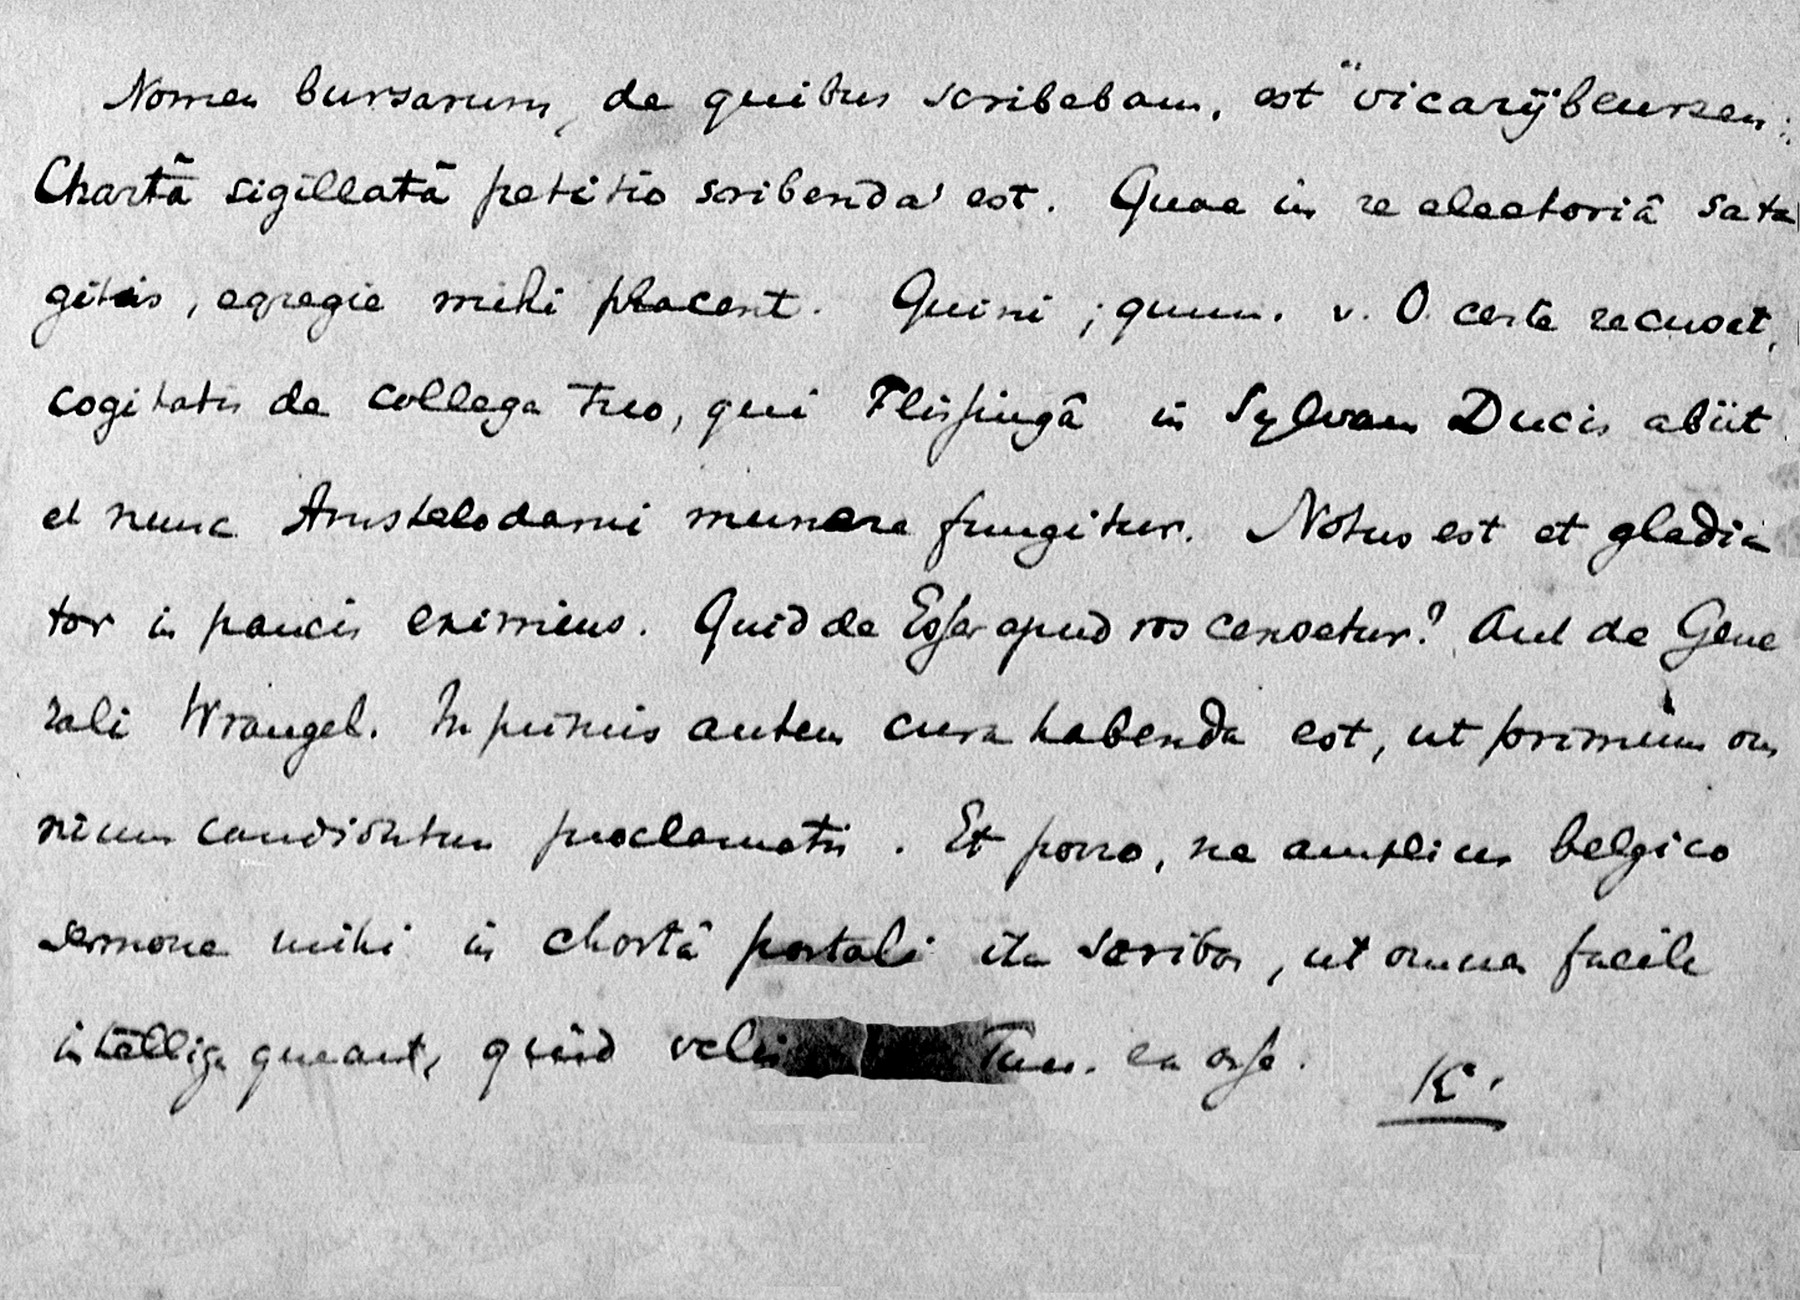 Nomen bursarum, de quibus scribebam, est "vicarijbeurzen".
Chartâ sigillatâ petitio scribenda est. Quae in re electoriâ sata
gitis, egregie mihi placent. Quini; quum v. O. certe recuset,
cogitatis de collega tuo, qui Flissingâ in Sylvam Ducis abiit
et nunc Amstelodami munere fungitur. Notus est et gladia
tor in paucis eximius. Quid de Esser apud vos censetur? Aut de Gene
rali Wrangel. In primis autem cura habenda est, ut primum om
nium candidatum proclametis. Et porro, ne amplius belgico
sermone mihi in chartâ postali ita scribas, ut omnes facile
intellige queant, quid velis Tuum en esse.
K.